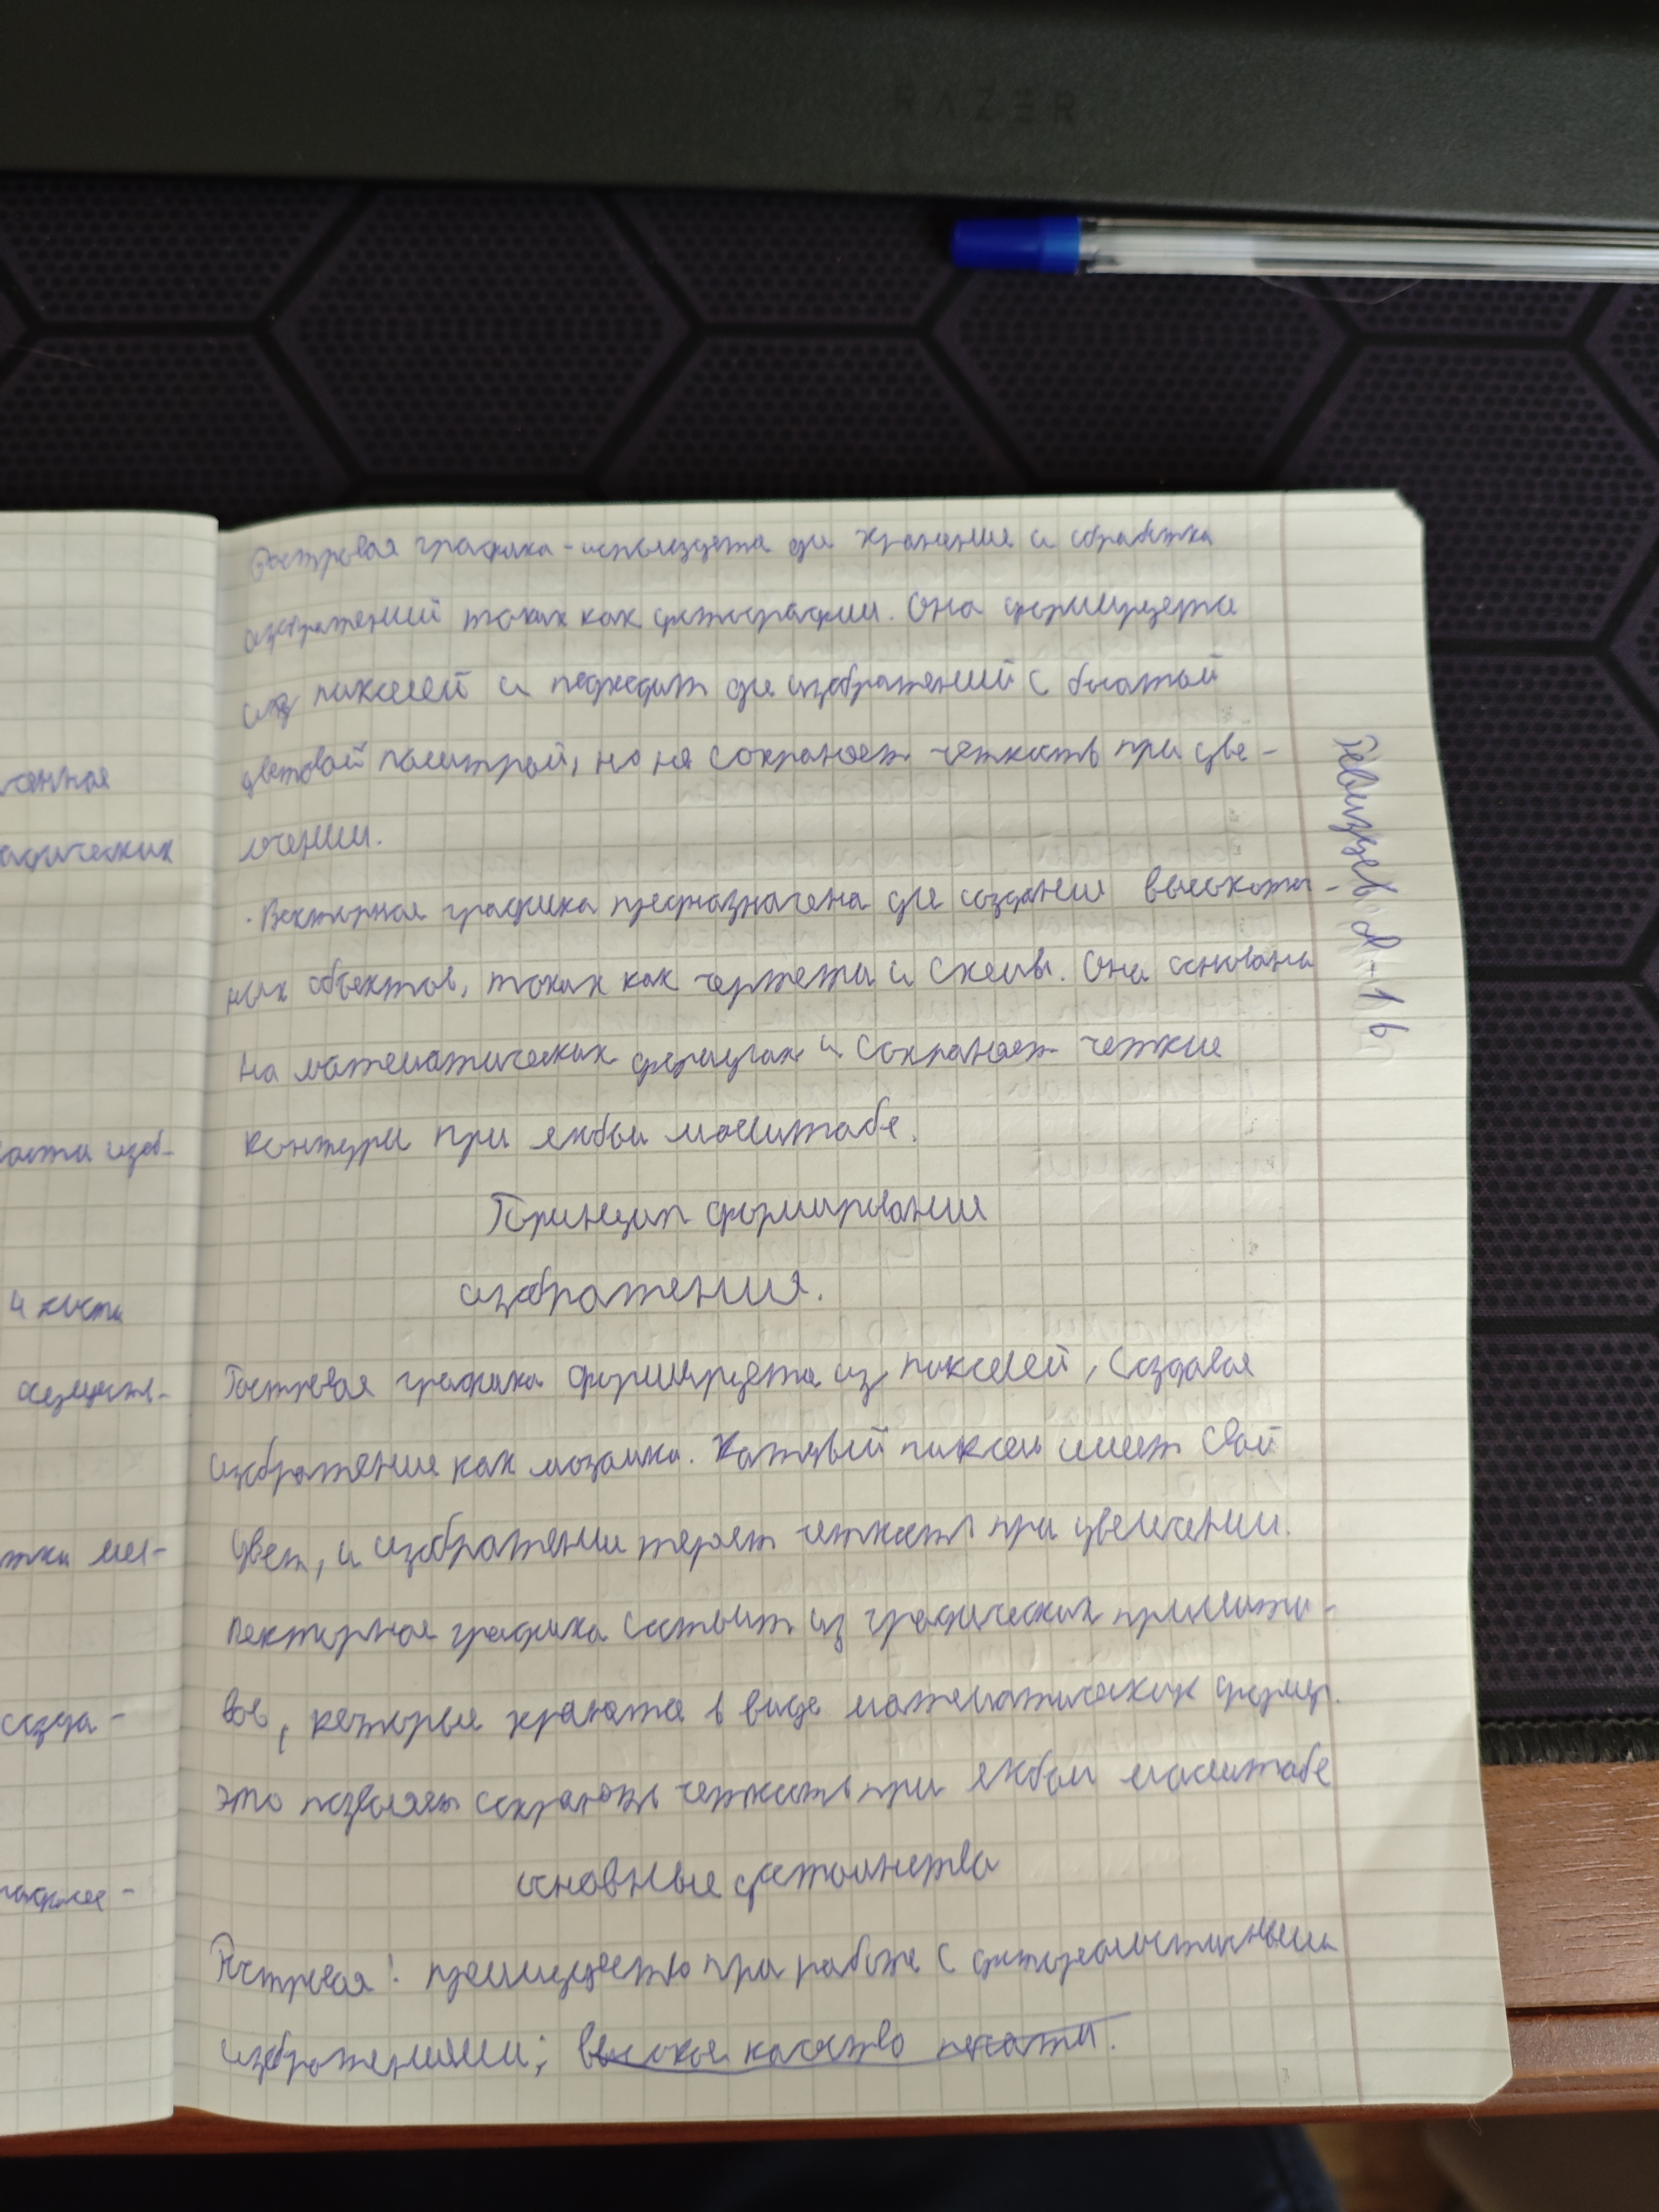 RAZER
Растровая графика - используется для хранения и обработки
изображений таких как фотографии. Она формируется
из пикселей и подходит для изображений с богатой
цветовой палитрой, но не сохраняет четкость при уве-
личении.
· Векторная графика предназначена для создания высокоточ-
ных объектов, таких как чертежи и схемы. Она основана
на математических формулах и сохраняет четкие
контуры при любом масштабе.
Принцип формирования
изображения.
Растровая графика формируется из пикселей, создавая
изображение как мозаика. Каждый пиксель имеет свой
цвет, и изображение теряет четкость при увеличении.
Векторная графика состоит из графических примити-
вов, которые хранятся в виде математических формул.
это позволяет сохранять четкость при любом масштабе
основные достоинства
Растровая: преимущество при работе с фотореалистичными
изображениями; высокое качество печати.
8-1 b
адических
ности изоб-
и кисти
созда-